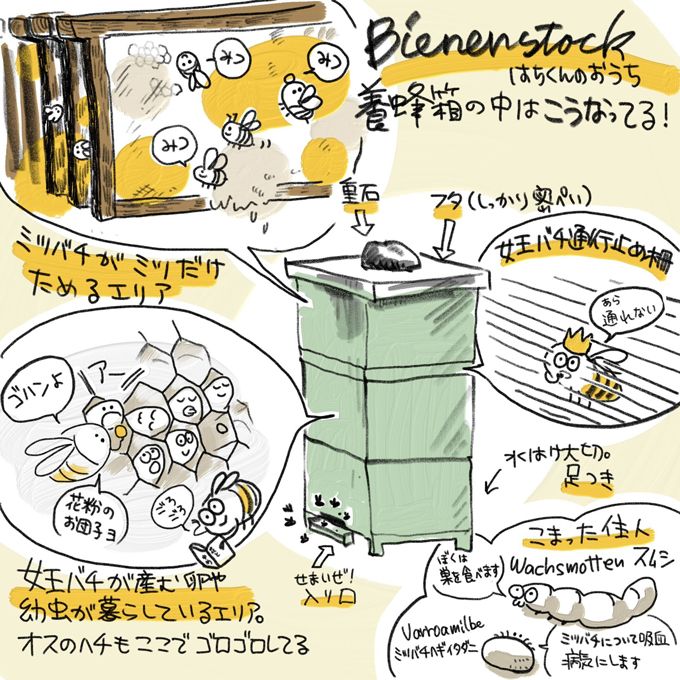 Bienenstock
はちくんのおうち
養蜂箱の中はこうなってる!
ミツ
ミツ
ミツ
ミツバチがミツだけ
ためるエリア
重石
フタ(しっかり密ぺい)
女王バチ通行止め柵
あら
通れない
ゴハンよ
アー
花粉の
お団子ヨ
女王バチが産む卵や
幼虫が暮らしているエリア。
オスのハチもここでゴロゴロしてる
せまいぜ!
入り口
水はけ大切。
足つき
こまった住人
Wachsmotten スムシ
ぼくは
巣を食べます
Varroamilbe
ミツバチヘギイタダニ
ミツバチについて吸血
病気にします